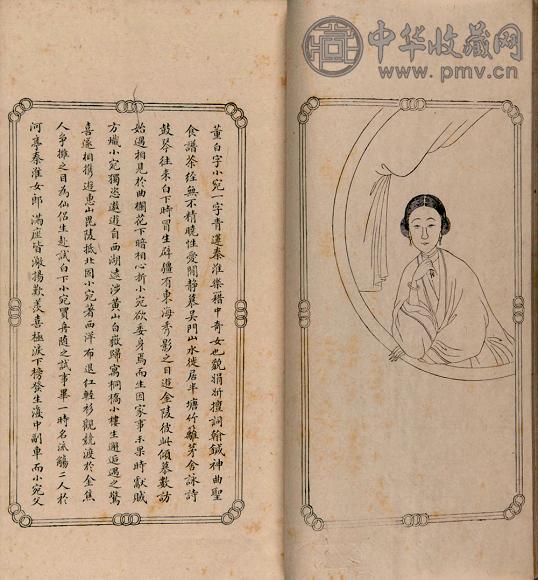 中华收藏网
www.pmv.cn
董白字小宛一字青蓮秦淮樂籍中奇女也貌娟妍擅詞翰鍼神曲聖
食譜茶經無不精曉性愛閒静慕吴門山水徙居半塘竹籬茅舍詠詩
鼓琴往来白下時冒生辟疆有東海秀影之目遊金陵彼此傾慕數訪
始遇相見於曲欄花下暗相心折小宛欲委身焉而生因家事未果時獻賊
方熾小宛獨恣遨遊自西湖遠涉黄山白嶽歸寓桐橋小樓生邂逅遇之驚
喜遂相携遊惠山毘陵抵北固小宛著西洋布退红輕衫觀競渡於金焦
人争擁之目為仙侶生赴試白下小宛買舟随之試事畢一時名流觴二人於
河亭秦淮女郎满座皆激揚歎羡喜極淚下榜發生復中副車而小宛父